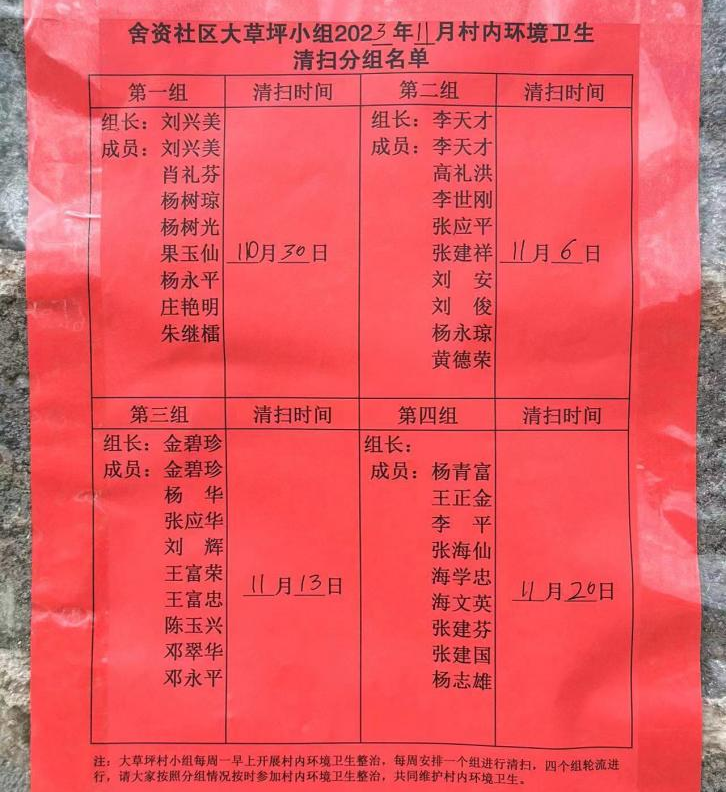 舍资社区大草坪小组2023年11月村内环境卫生
清扫分组名单
第一组 清扫时间 第二组 清扫时间
组长：刘兴美
成员：刘兴美
肖礼芬
杨树琼
杨树光
果玉仙
杨永平
庄艳明
朱继櫑
10月30日
组长：李天才
成员：李天才
高礼洪
李世刚
张应平
张建祥
刘 安
刘 俊
杨永琼
黄德荣
11月6日
第三组 清扫时间 第四组 清扫时间
组长：金碧珍
成员：金碧珍
杨 华
张应华
刘 辉
王富荣
王富忠
陈玉兴
邓翠华
邓永平
11月13日
组长：
成员：杨青富
王正金
李 平
张海仙
海学忠
海文英
张建芬
张建国
杨志雄
11月20日
注：大草坪村小组每周一早上开展村内环境卫生整治，每周安排一个组进行清扫，四个组轮流进
行，请大家按照分组情况按时参加村内环境卫生整治，共同维护村内环境卫生。